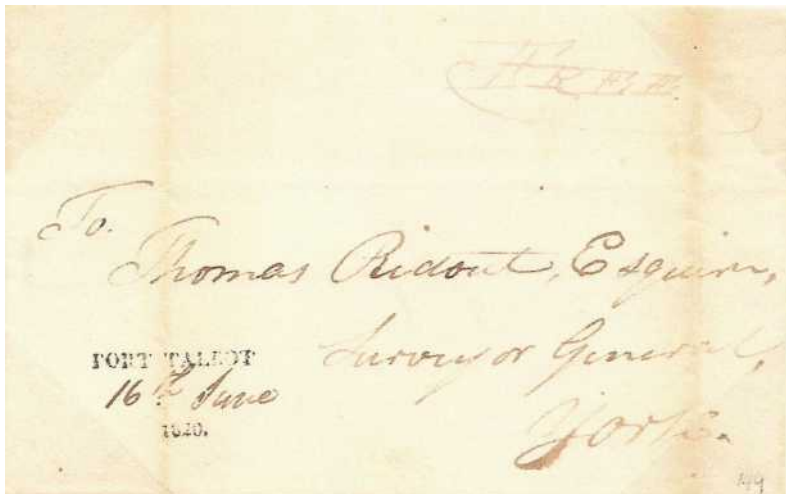 FREE.
To.
Thomas Ridout, Esquire,
Surveyor General,
York.
PORT TALBOT
16th June
1820.